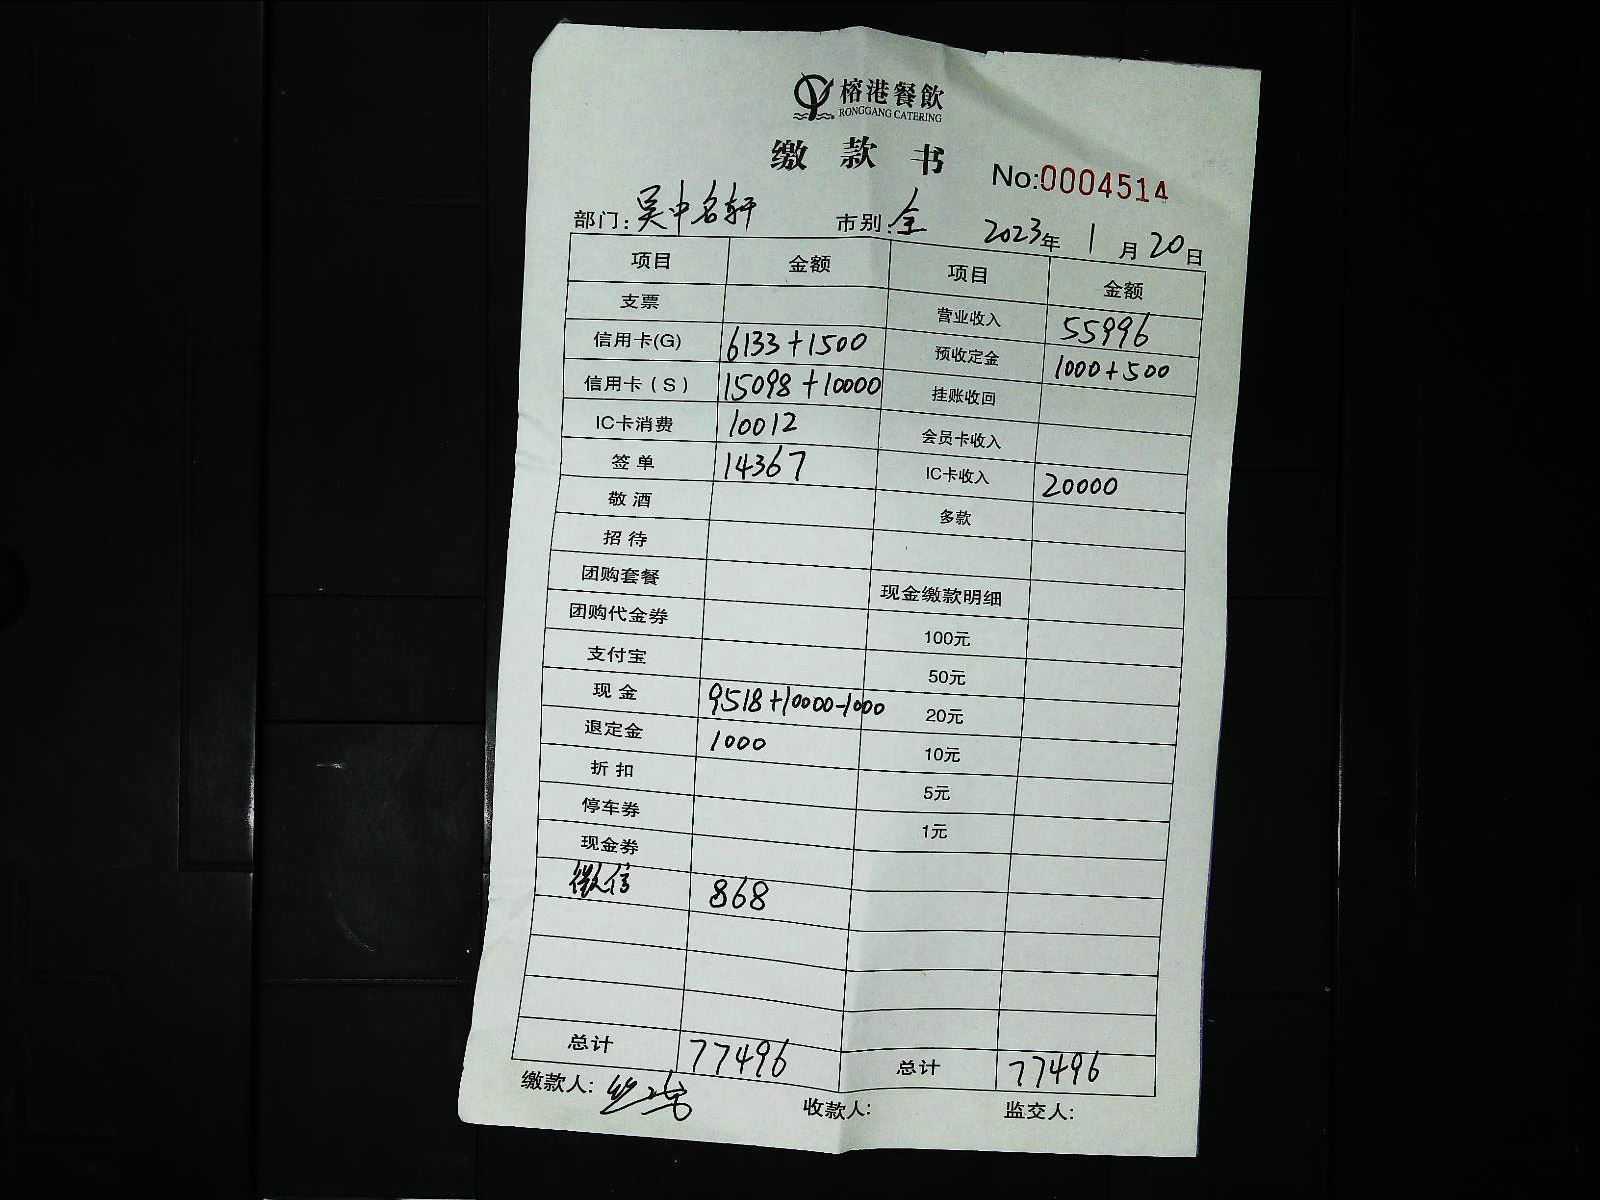 榕港餐飲
RONGGANG CATERING
缴款书
No:0004514
部门: 吴中名轩 市别: 全 2023年 1月20日
项目 金额 项目 金额
支票 营业收入 55996
信用卡(G) 6133+1500 预收定金 1000+500
信用卡（S） 15098+10000 挂账收回
IC卡消费 10012 会员卡收入
签单 14367 IC卡收入 20000
敬酒 多款
招待
团购套餐 现金缴款明细
团购代金券 100元
支付宝 50元
现金 9518+10000-1000 20元
退定金 1000 10元
折扣 5元
停车券 1元
现金券
微信 868
总计 77496 总计 77496
缴款人: 收款人: 监交人: